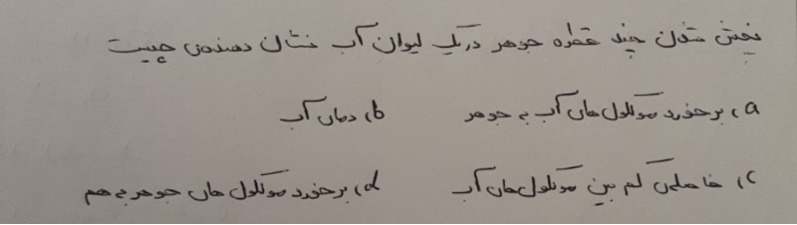 پخش شدن چند قطره جوهر در یک لیوان آب نشان دهنده‌ی چیست
a) برخورد مولکول های آب به جوهر b) دمای آب
c) فاصله‌ی کم بین مولکول های آب d) برخورد مولکول های جوهر به هم